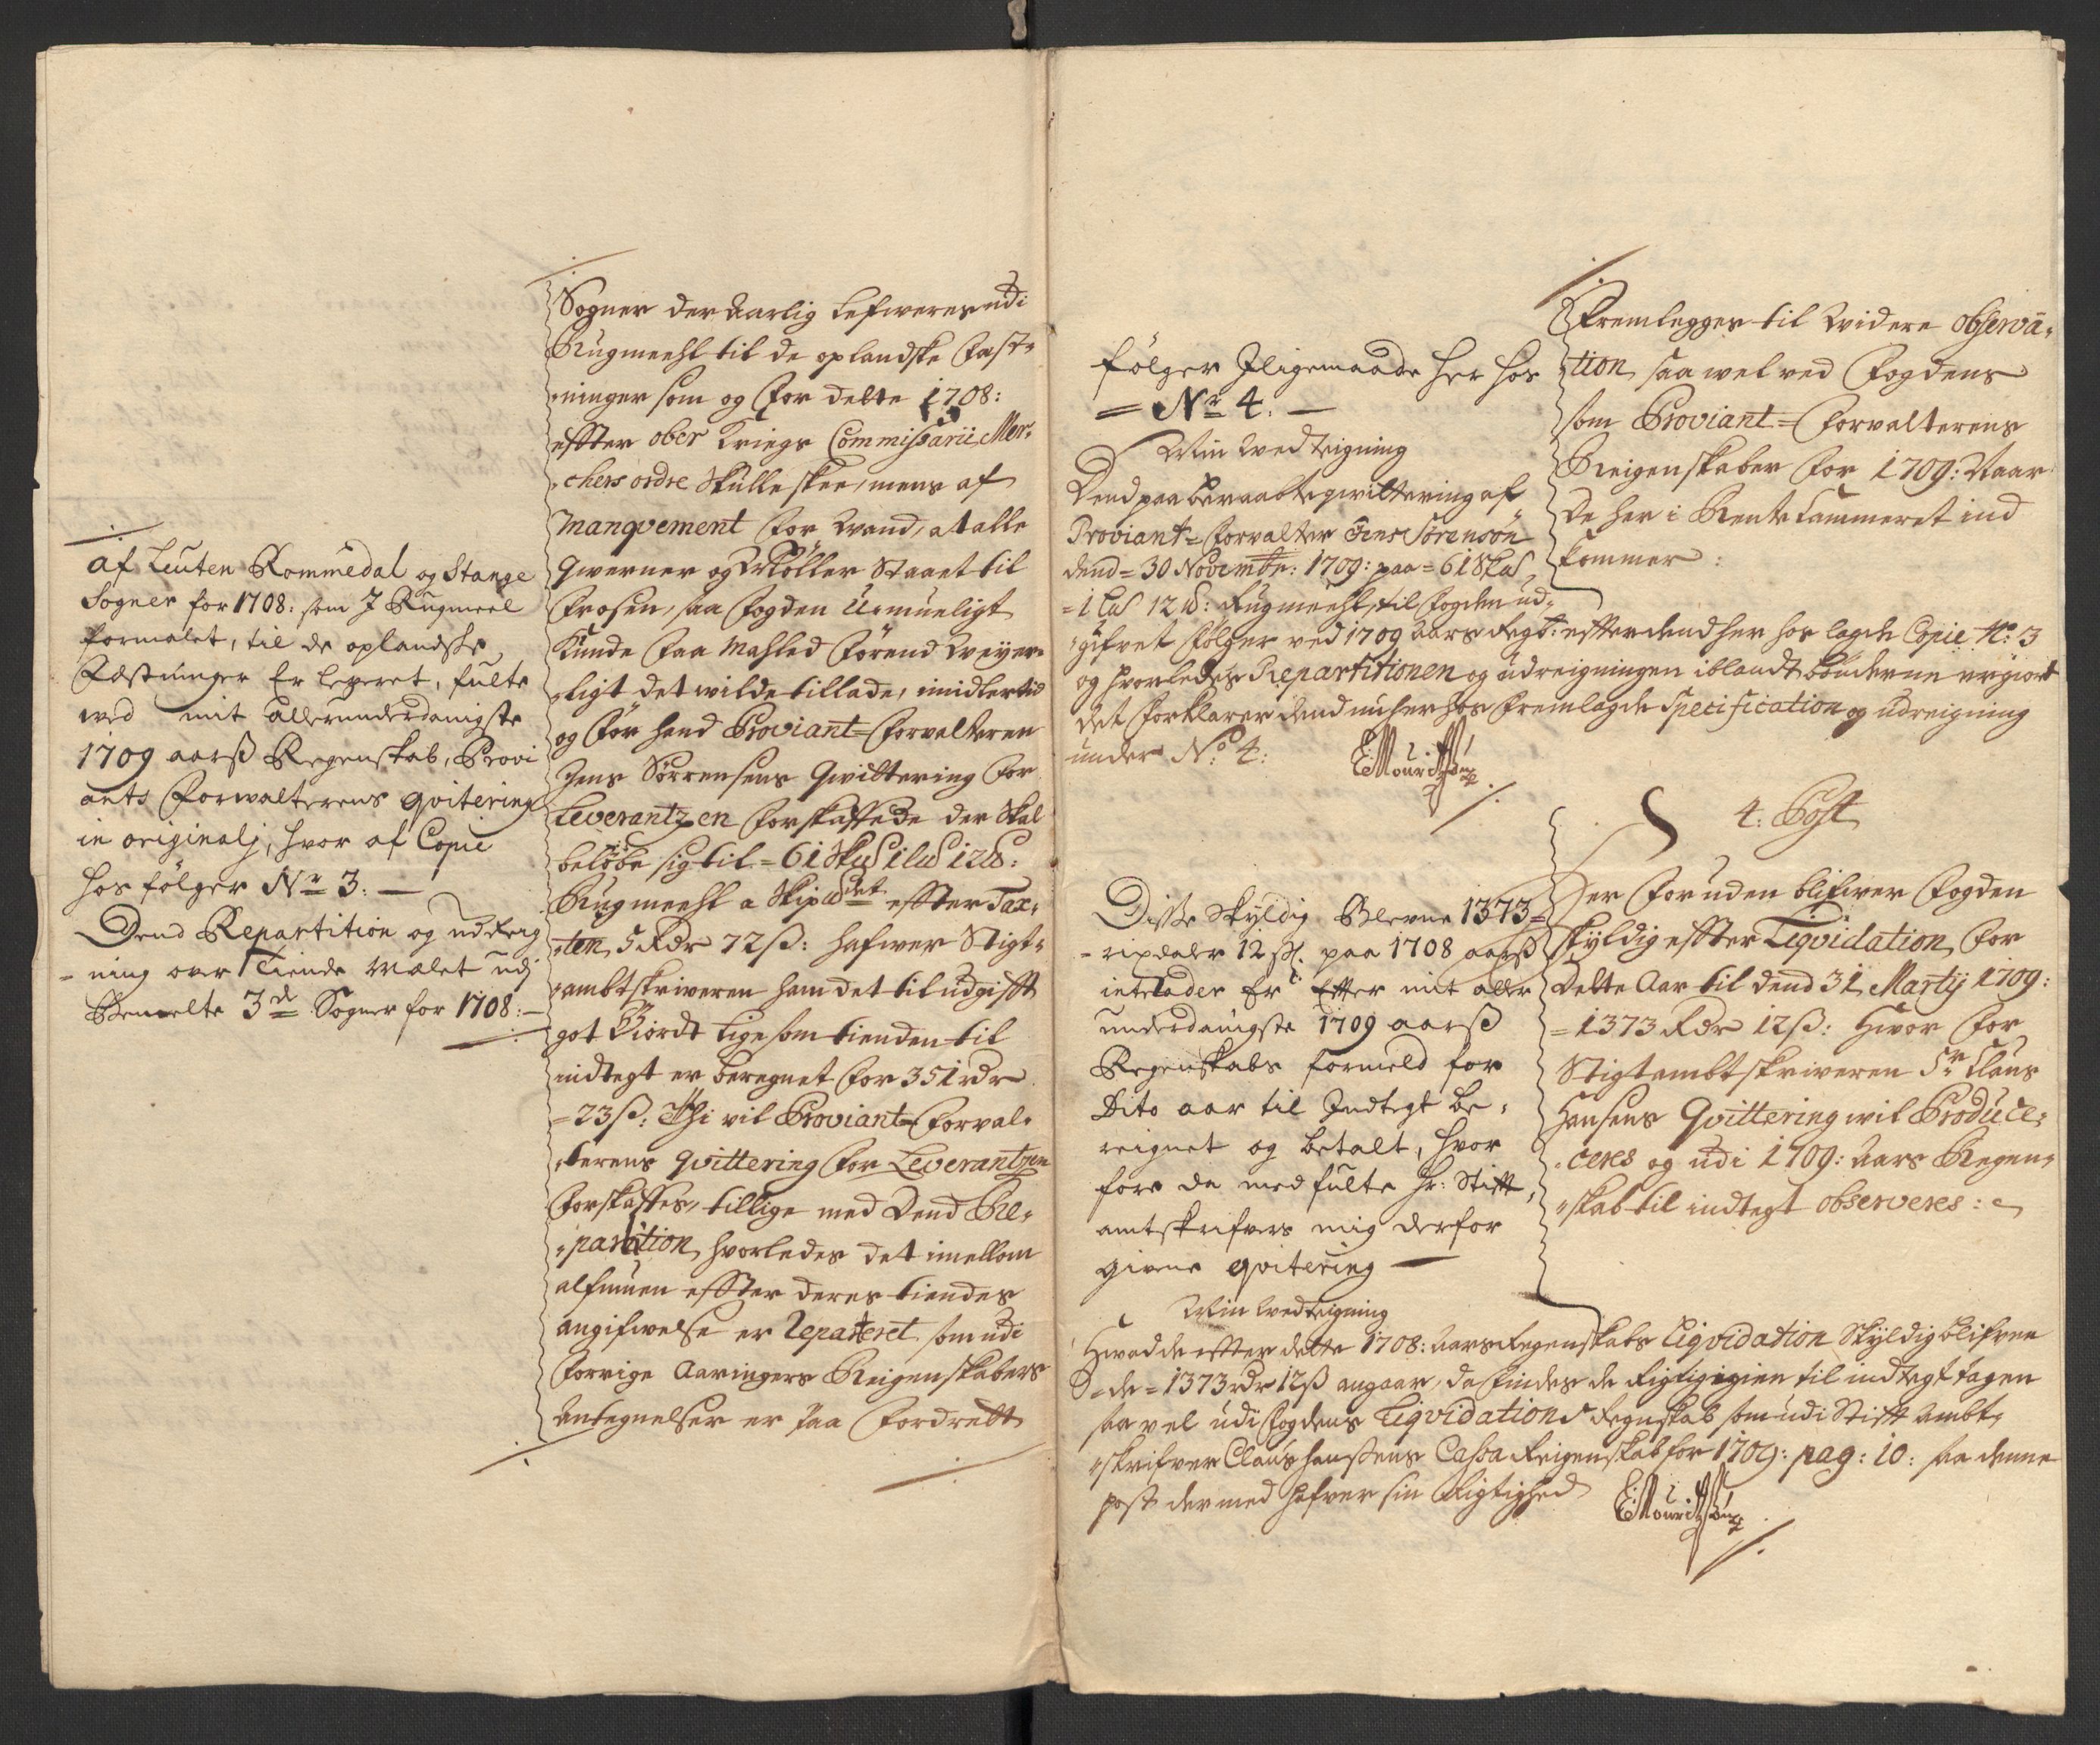 af Leuten Rommedal og Stange
Sogner for 1708: som J Rugmeel
formalet, til de oplandske
Fæstninger Er leveret, fulte
ved mit allerunderdanigste
1709 aarß Regenskab, Provi
ants Forvalterens qvitering
in originalj, hvor af Copie
hos følger Nr 3: —
Dend Repartition og udreig
-ning over Tiende Malet udj
Bemelte 3de Sogner for 1708: —
Sogner der aarlig lefweres udi
Rugmeehl til de oplandske Fæst-
-ninger som og for dette 1708:
effter ober Kriegs Commissarii Mer-
-chers ordre skulle skee, mens af
Manqvement for Wand, at alle
Qwerner og Møller staaet til
frosen, saa fogden u-mueligt
kunde faa Mahled førend Weyer-
-ligt det wilde tillade, imidlertid
og før hand Proviant-forvalteren
Jens Sørrensens qwittering for
Leverantzen forskaffede der skal
beløbe sig til = 61 Sk℔ 1 L℔ 12℔:
Rugmeehl a Skip℔det effter Tax-
-ten 5 Rdr 72ß: hafwer Stigt-
-ambtskriveren ham det til udgifft
got Giordt lige som tienden til
indtegt er beregnet for 351 rdr
= 23ß: Thi vil Proviant-forval-
-terens qvittering for Leverantzen
forskaffes, tillige med Dend Re-
-partition, hvorledes det imellom
alfmuen effter deres tiendes
angifwelse er reparteret som udi
forrige Aaringers Reigenskabers
Antegnelser er saa fordrett
følger Jligemaade her hos
= Nr 4. —
Min Wedteigning
Dend paa beraabte qvittering af
Proviant-forvalter Jens Sørensøn
dend = 30 Novembr: 1709: paa = 61 Sk℔
= 1 L℔ 12 ℔: Rugmeehl, til fogden ud-
-gifvet følger ved 1709 aars Regsk: efter dend her hos lagde Copie No: 3
og hvorledes Repartitionen og udreigningen iblandt bønderne er giort
det forklarer dend nu her hos fremlagde Specification og udreigning
under No: 4:
Fremlegges til widere observa-
-tion saa wel ved fogdens
som Proviant-forvalterens
Reigenskaber for 1709: Naar
de her i Rente Cammeret ind
kommer:
4: Post
Disse skyldig Blevne 1373
-rixdaler 12 ß. paa 1708 aarß
Er Efter mit aller
underdanigste 1709 aarß
Regenskabs formeld for
Dito aar til Indtegt be-
reignet og betalt, hvor
fore da medfulte Hr: Stift-
amtskrifvers mig derfor
givene qvitering —
Der foruden blifwer fogden
skyldig effter Liqvidation for
dette Aar til dend 31 Martij 1709:
= 1373 Rdr 12ß: Hwor for
Stigtambtskriveren Sr Claus
Hansens Qvittering wil Produce-
-ceres og udi 1709: Aars Regen-
-skab til indtegt observeres:
Min Wedteigning
Hwad de efter dette 1708: Aars Regenskabs Liqvidation skyldig blifvene
= de = 1373 rdr 12ß angaar, da findes de Rigtig igien til indtegt tagen
saa vel udi fogdens Liqvidations Regnskab som udi Stift Ambt-
-skrifver Claus Hansens Cassa Reigenskab for 1709: pag: 10: saa denne
post der med hafver sin Rigtighed